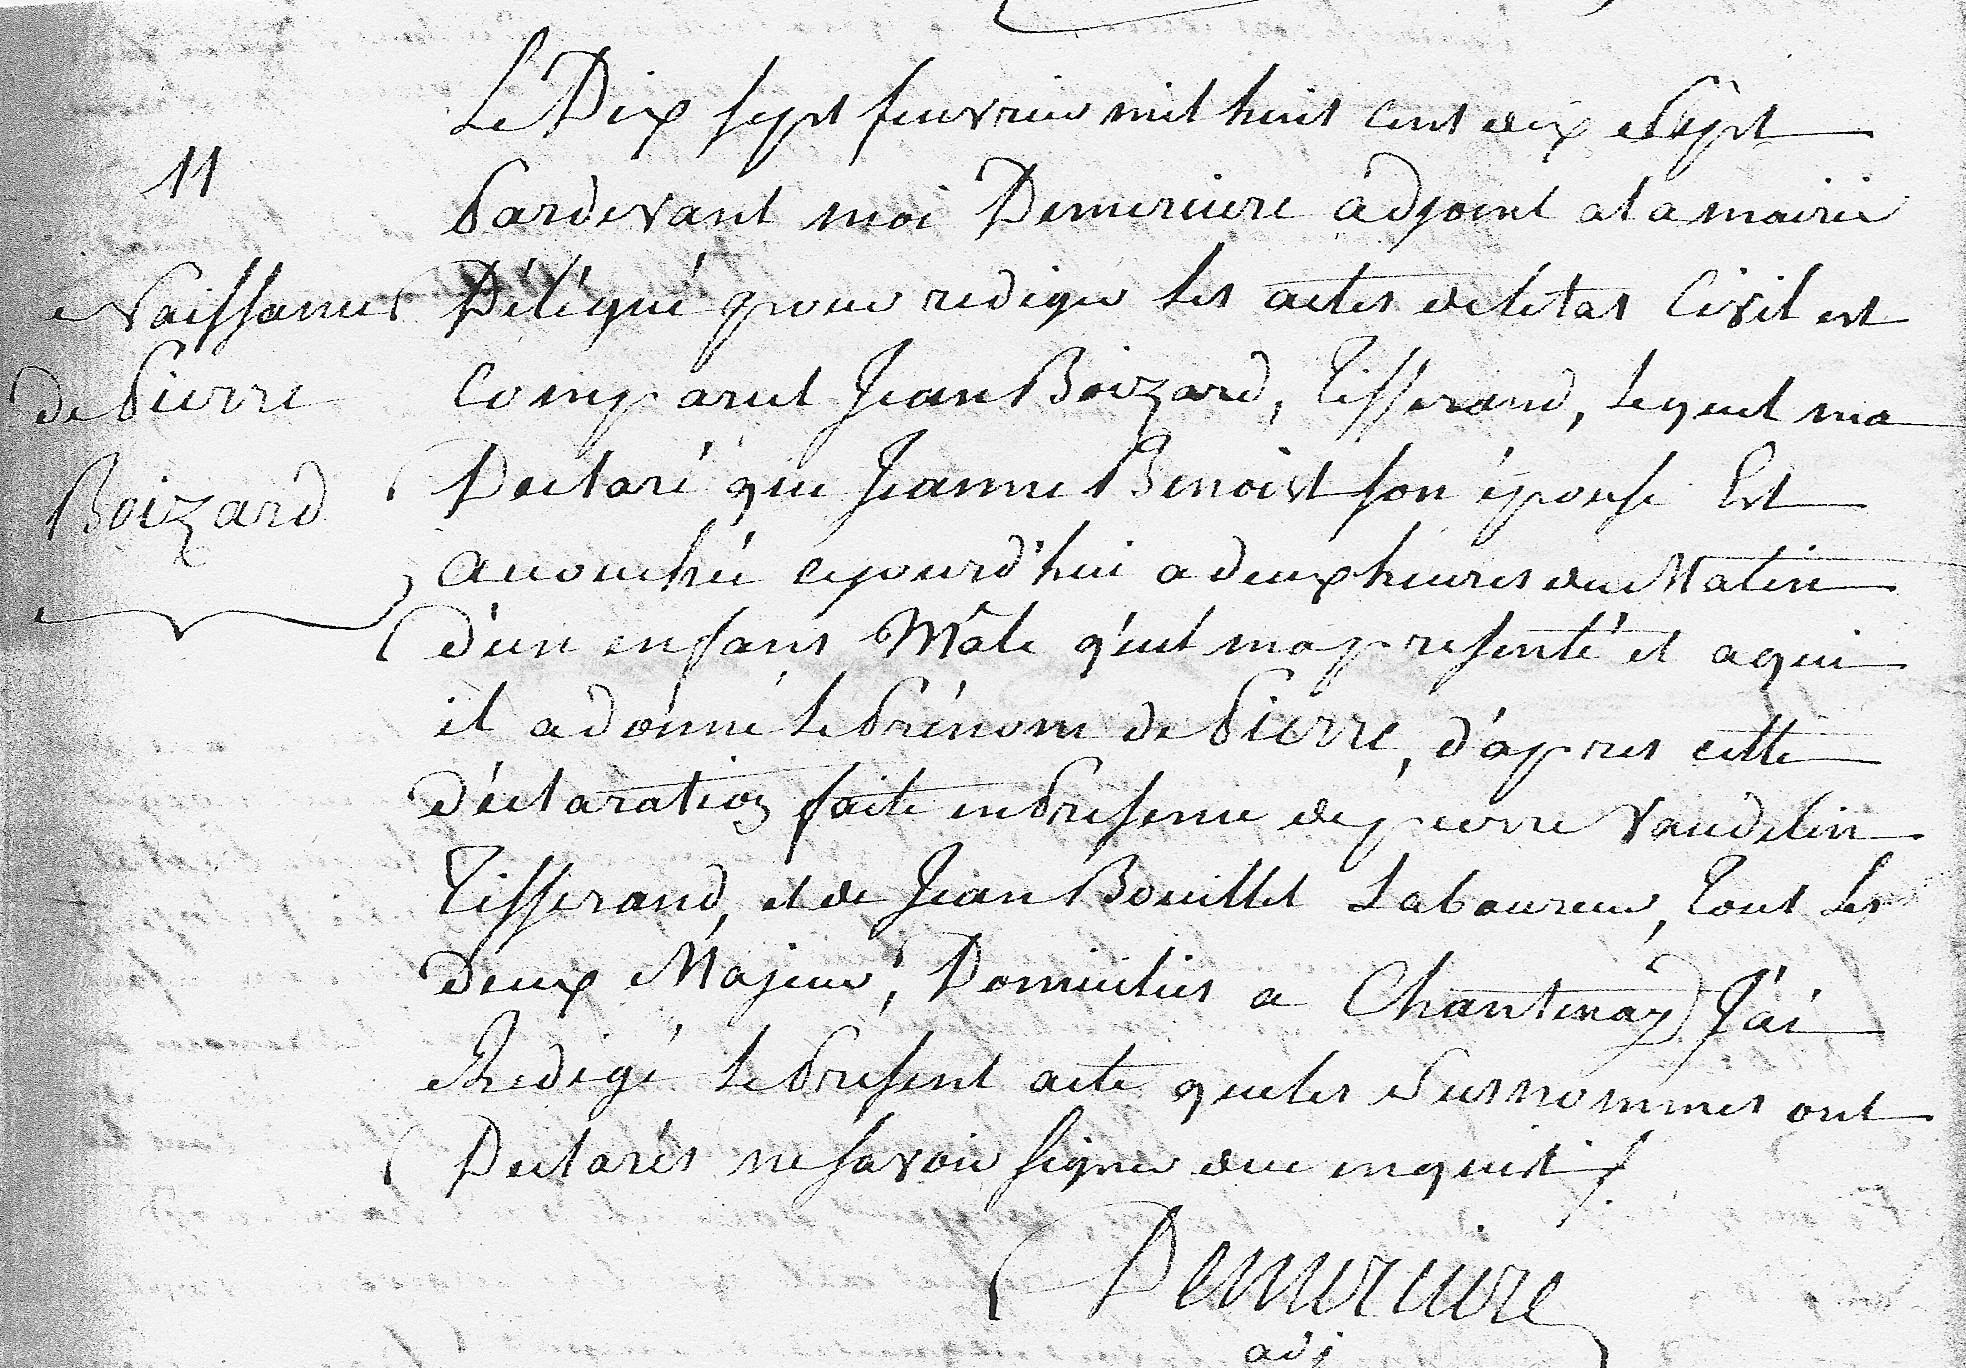 Le Dix sept fenvrier mil huit cent dix Sept
11
Pardevant moi Demerciere adjoint a la mairie
Naissance
Délégué pour rediger les actes deletat Civil est
de Pierre
Comparut Jean Boizard, Tisserand, lequel ma
Boizard
Declaré que Jeanne Benoist son épouse Est
accouchée cejourd'hui a deux heures du Matin
d'un enfant Mâle q'uil ma presenté et aqui
il a donné le Prénom de Pierre, d'apres cette
déclaration faite en Presence de pierre Vaudelin
Tisserand, et de Jean Bouillet Laboureur, tout Les
Deux Majeur, Domicilies a Chantenay J'ai
Redigé le Present acte queles Susnommes ont
Declarés ne savoir signer de ce enquis
Demerciere
adj